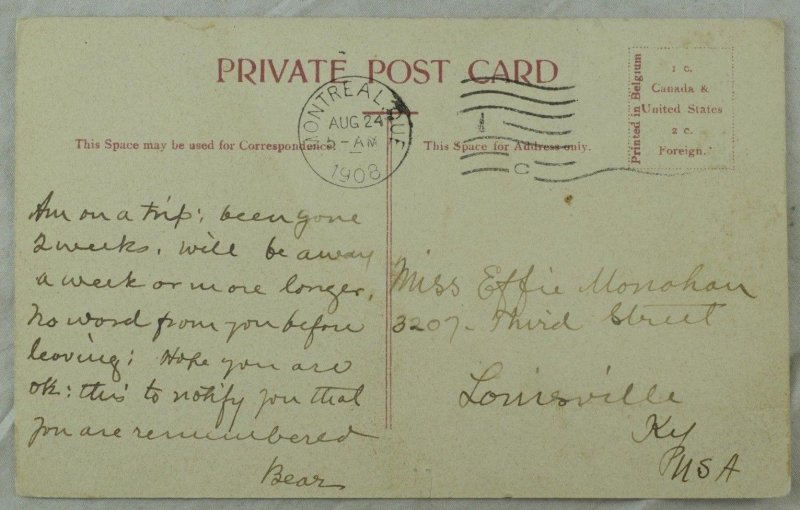 PRIVATE POST CARD
MONTREAL, QUE
AUG 24
5-AM
1908
C
Printed in Belgium
1 c.
Canada &
United States
2 c.
Foreign.
This Space may be used for Correspondence.
This Space for Address only.
Am on a trip; been gone
2 weeks. Will be away
a week or more longer.
No word from you before
leaving; Hope you are
ok: this to notify you that
you are remembered
Bear
Miss Effie Monahan
3207- Third Street
Louisville
Ky
USA